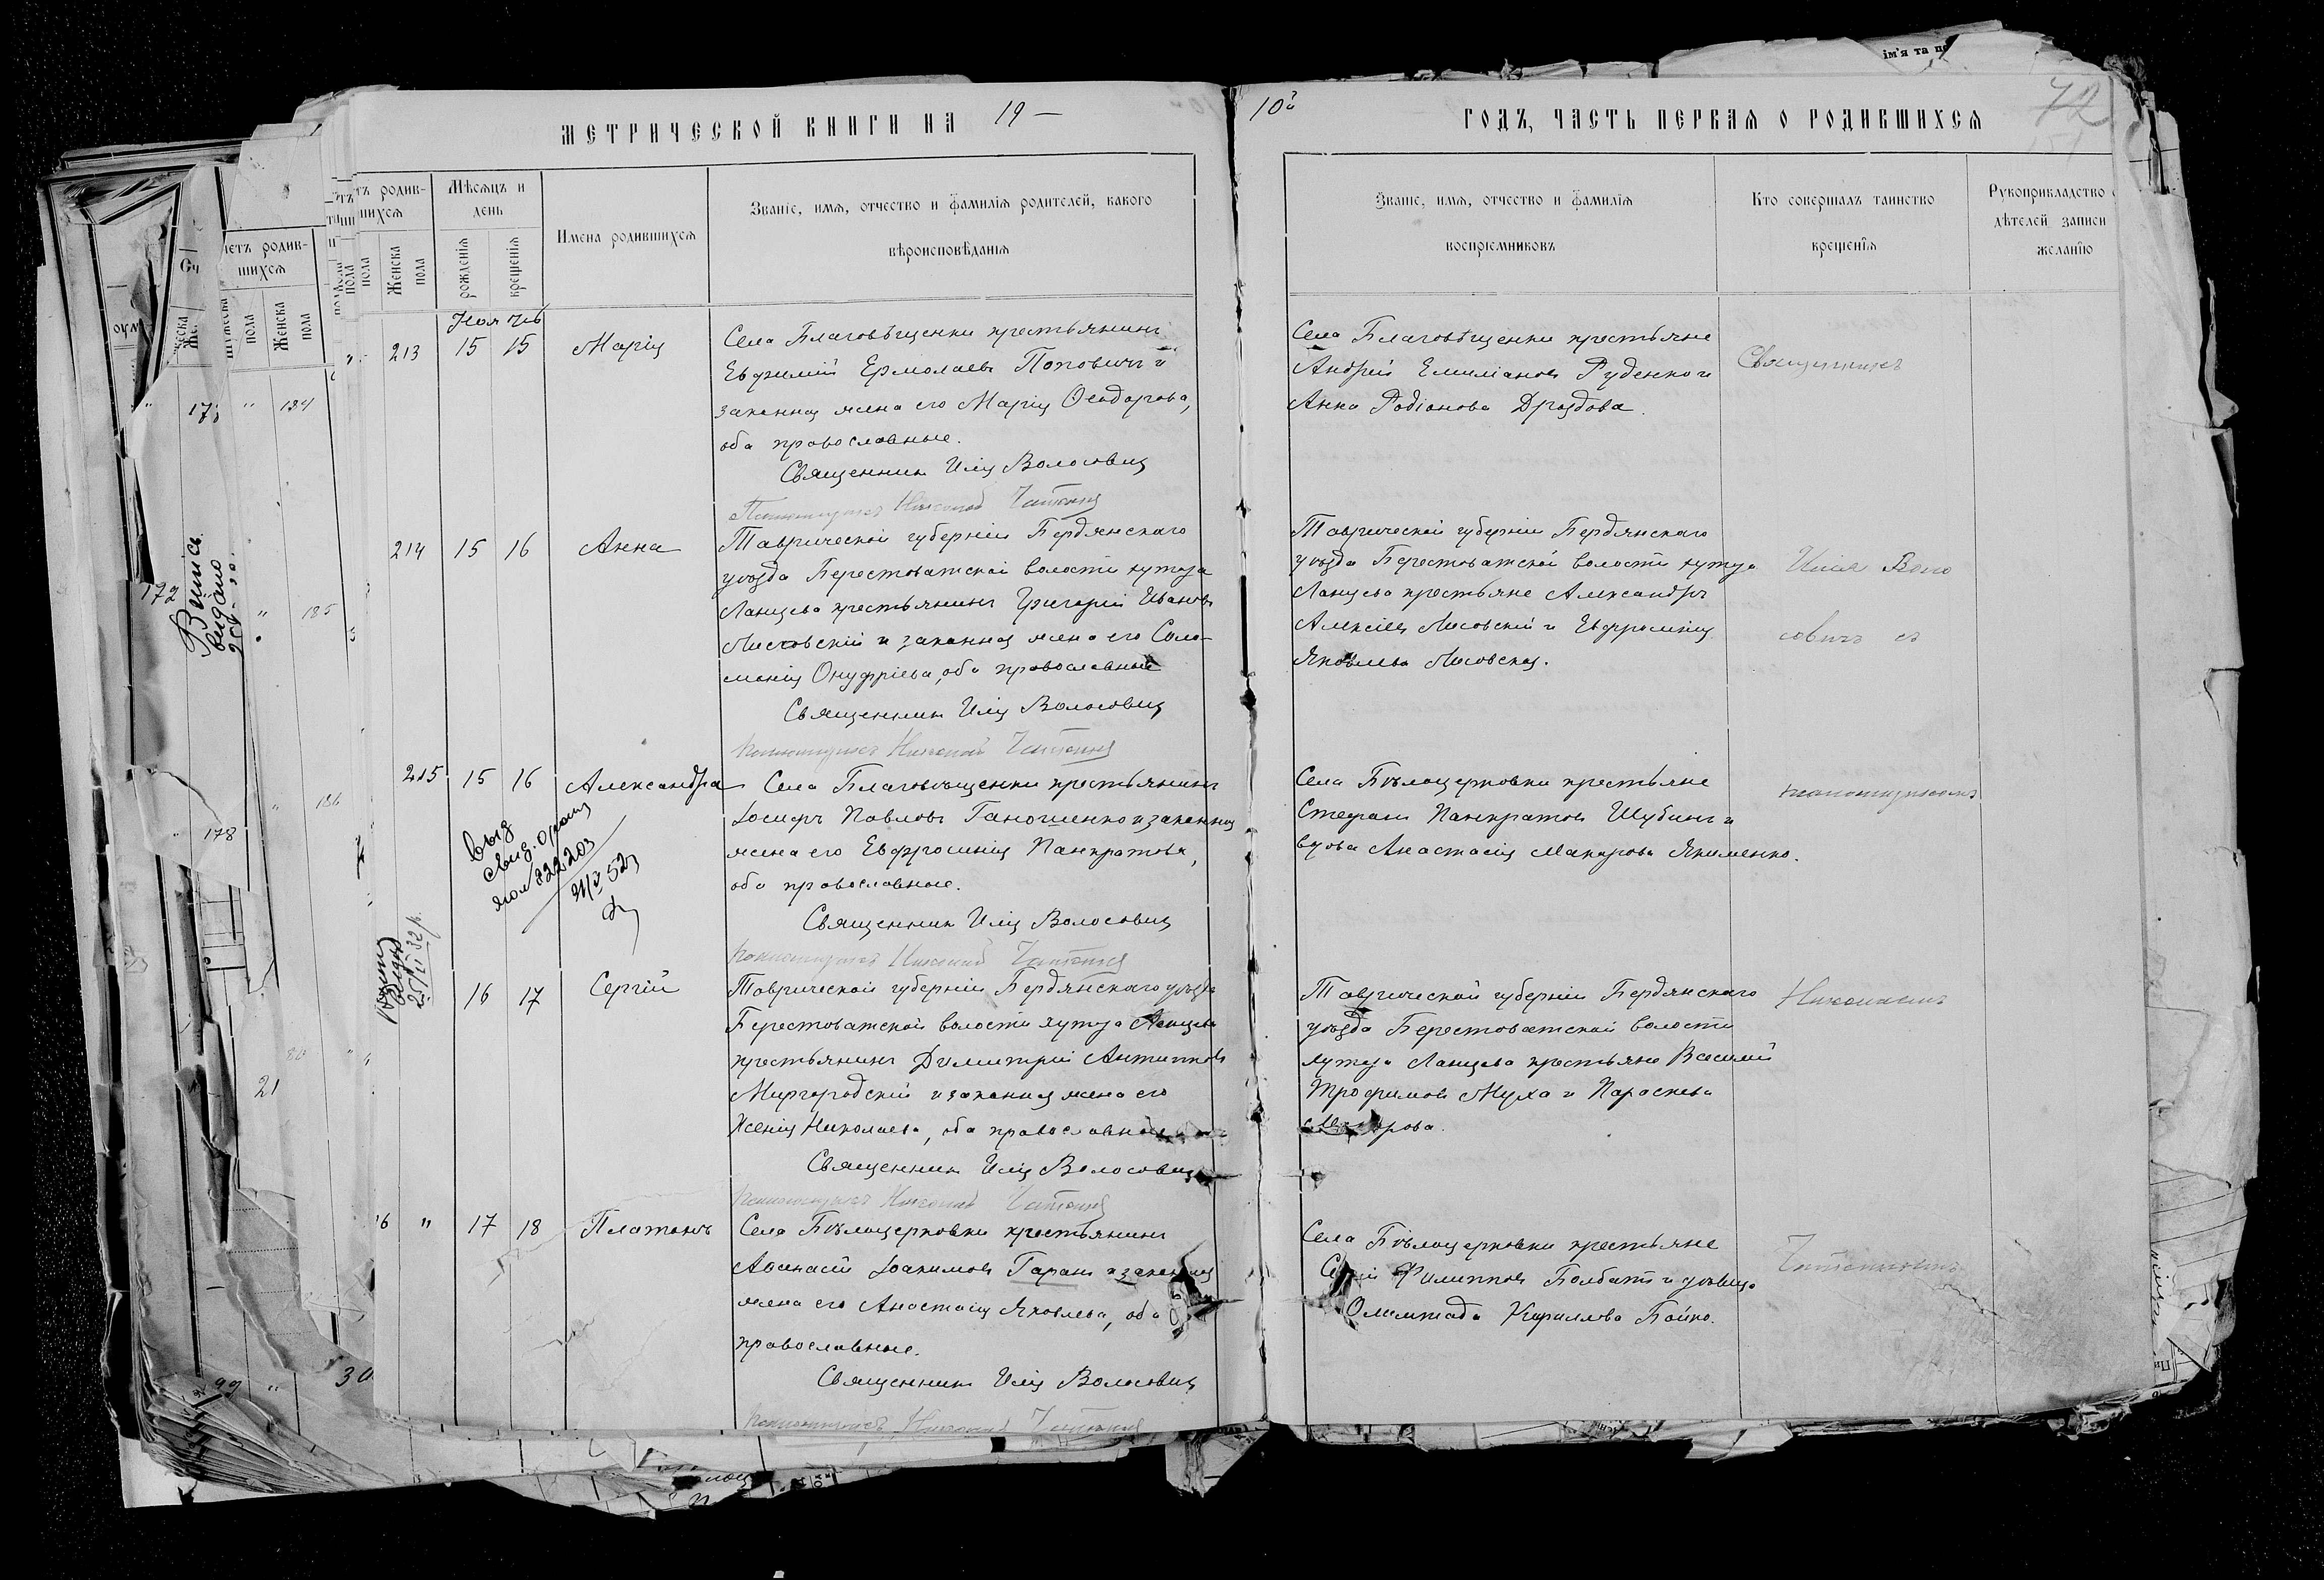 ім'я та по
МЕТРИЧЕСКОЙ КНИГИ НА 19 —
10й ГОДЪ, ЧАСТЬ ПЕРВАЯ О РОДИВШИХСЯ
72
родив-
шихся
Женска
пола
Мѣсяцъ и
день
рожденія
крещенія
Имена родившихся
Званіе, имя, отчество и фамилія родителей, какого
вѣроисповѣданія
Званіе, имя, отчество и фамилія
воспріемниковъ
Кто совершалъ таинство
крещенія
Рукоприкладство
дѣтелей записи
желанію
Ноябрь
213 15 15 Марія
Села Благовѣщенки крестьянинъ
Евфимій Ермолаевъ Поповичъ и
законная жена его Марія Ѳеодорова,
оба православные.
Священникъ Илія Волосовичъ
Села Благовѣщенки крестьяне
Андрей Емиліановъ Руденко и
Анна Родіонова Дроздова.
Священникъ
214 15 16 Анна
Таврической губерніи Бердянскаго
уѣзда Берестоватской волости хутора
Ланцева крестьянинъ Григорій Ивановъ
Лисовскій и законная жена его Соло-
монія Онуфріева, оба православные
Священникъ Илія Волосовичъ
Псаломщикъ Николай
Таврической губерніи Бердянскаго
уѣзда Берестоватской волости хутора
Ланцева крестьяне Александръ
Алексіевъ Лисовскій и Евфросинія
Яковлева Лисовская.
Илія Воло
совичъ съ
215 15 16 Александра
Села Благовѣщенки крестьянинъ
Іосифъ Павловъ Ганошенко и законная
жена его Евфросинія Панкратова,
оба православные.
Священникъ Илія Волосовичъ
Псаломщикъ Николай
Села Бѣлоцерковки крестьяне
Стефанъ Панкратовъ Шубинъ и
вдова Анастасія Макарова Якименко.
псаломщикомъ
Выд
свид.
222203
52
16 17 Сергій
Таврической губерніи Бердянскаго уѣзда
Берестоватской волости хутора Ланцева
крестьянинъ Димитрій Антиповъ
Миргородскій и законная жена его
Ксенія Николаева, оба православные
Священникъ Илія Волосовичъ
Псаломщикъ Николай
Таврической губерніи Бердянскаго
уѣзда Берестоватской волости
хутора Ланцева крестьяне Василій
Трофимовъ Муха и Параскева
Николаемъ
16 " 17 18 Платонъ
Села Бѣлоцерковки крестьянинъ
Аѳанасій Іоакимовъ Гаранъ и законная
жена его Анастасія Яковлева, оба
православные.
Священникъ Илія Волосовичъ
Псаломщикъ Николай
Села Бѣлоцерковки крестьяне
Филипповъ Болбатъ и дѣвица
Олимпіада Кириллова Бойко.
родив-
шихся
Женска
пола
184
185
186
172
178
Виписъ
видано
21
99
30